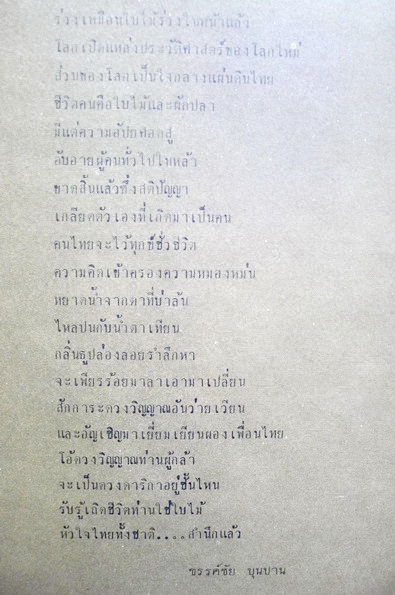 ร่วงเหมือนใบไม้ร่วงไปหน้าแล้ว
โลกเปิดแหล่งประวัติศาสตร์ของโลกใหม่
ส่วนของโลกเป็นใจกลางแผ่นดินไทย
ชีวิตคนคือใบไม้และผักปลา
มีแต่ความอัปยศอดสู
อับอายผู้คนทั่วไปในหล้า
ขาดสิ้นแล้วซึ่งสติปัญญา
เกลียดตัวเองที่เกิดมาเป็นคน
คนไทยจะไว้ทุกข์ชั่วชีวิต
ความคิดเข้าครองความหมองหม่น
หยาดน้ำจากตาที่บ่าล้น
ไหลปนกับน้ำตาเทียน
กลิ่นธูปล่องลอยรำลึกหา
จะเพียรร้อยมาลาเอามาเปลี่ยน
สักการะดวงวิญญาณอันว่ายเวียน
และอัญเชิญมาเยี่ยมเยียนผองเพื่อนไทย
โอ้ดวงวิญญาณท่านผู้กล้า
จะเป็นดวงดาริกาอยู่ชั้นไหน
รับรู้เถิดชีวิตท่านใช่ใบไม้
หัวใจไทยทั้งชาติ....สำนึกแล้ว
ขรรค์ชัย บุนปาน